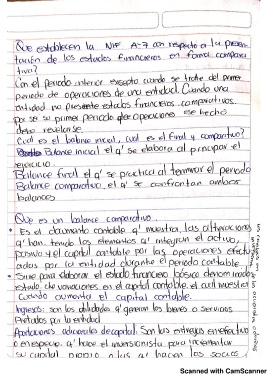 Que establecen la NIF A-7 con respecto a la presen-
tación de los estados financieros en forma compara
tiva?
Con el periodo anterior excepto cuando se trate del primer
periodo de operaciones de una entidad. Cuando una
entidad no presente estados financieros comparativos
por ser su primer periodo de operaciones ese hecho
debe revelarse.
Cual es el balance inicial, cual es el final y comparativo?
Balance inicial el q' se elabora al principiar el
ejercicio.
Balance final el q' se practica al terminar el periodo
Balance comparativo, el q' se confrontan ambos
balances
Que es un balance comparativo.
• Es el documento contable q' muestra, las alteraciones
q' han tenido los elementos q' integran el activo,
pasivo y el capital contable por las operaciones efectu
adas por la entidad durante el periodo contable.
• Sirve para elaborar el estado financiero básico denominado
estado de variaciones en el capital contable. el cual muestra
cuando aumenta el capital contable.
Ingresos: son las utilidades q' generan los bienes o servicios
Prestados por la entidad
Aportaciones adicionales de capital: Son las entregas en efectivo
o en especie q' hace el inversionista para incrementar
su capital propio o las q' hacen los socios
Scanned with CamScanner